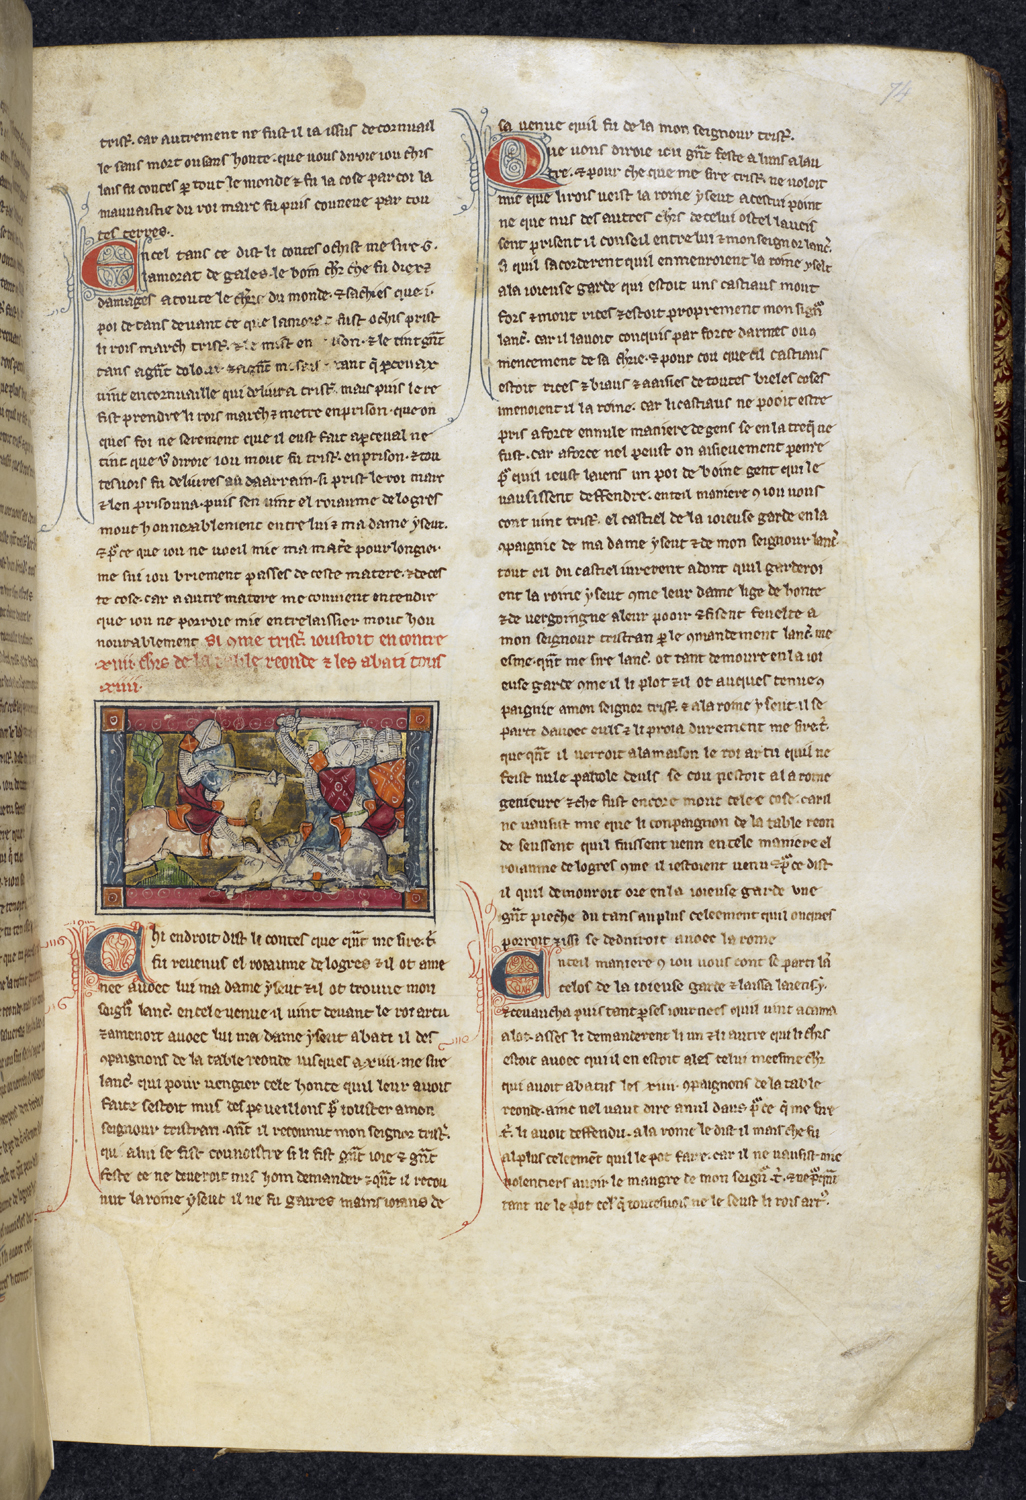 trist̃. car autrement ne fust il ia issus de cornuail
le sans mort ou sans honte. que uous diroie iou chris
lans fu contes ꝑ tout le monde ⁊ fu la cose par coi la
mauuaistie du roi marc fu puis conneue par tou
tes terres.
En cel tans ce dist li contes ochist me sire .G.
lamorat de gales. le boin chr̃ che fu diex ⁊
damages a toute le cheu̾rie du monde. ⁊ sachies que .i.
poi de tans deuant ce que lamorat fust ochis prist
li rois march trist̃. ⁊ le mist en ison. ⁊ le tint gñt
tans a gñt dolour ⁊ a gñt tant q̃ ꝑceuax
uint en cornuaille qui deliura trist̃. mais puis le re
fist prendre li rois march ⁊ metre en prison. que on
ques foi ne serement que il eust fait a ꝑceual ne
tint que v̾s diroie iou mout fu trist̃. en prison. ⁊ tou
tes uois fu deliures au daarrain. si prist le roi marc
⁊ len prisouna. puis sen uint el roiaume de logres
mout honnerablement entre lui ⁊ ma dame yseut.
⁊ pͬ ce que iou ne uoeil mie ma mat̾e pourlongier
me sui iou briement passes de ceste matere. ⁊ de ces
te cose. car a autre matere me conuient entendre
que iou ne porroie mie entrelaissier mout hon
nourablement si ꝯme trist̃. ioustoit encontre
.xiiii. chr̃s de la table reonde ⁊ les abati tous
.xiiii.
Chi endroit dist li contes que qñt me sire .t̃.
fu reuenus el roiaume de logres ⁊ il ot ame
nee auoec lui ma dame yseut ⁊ il ot trouue mon
seignͬ lanc̃. en cele uenue il uint deuant le roi artu
⁊ amenoit auoec lui ma dame yseut abati il des
ꝯpaignons de la table reonde iusques a .xiiii. me sire
lanc̃. qui pour uengier cele honte quil leur auoit
faite sestoit mus des peueillons pͬ iouster a mon
seignour tristran. qñt il reconnut mon seignor trist̃.
qui a lui se fist counoistre si li fist gñt ioie ⁊ gñt
feste ce ne deueroit nus hom demander ⁊ qñt il recou
nut la roine yseut il ne fu gaires mains ioians de
sa uenue quil fu de la mon seignour trist̃.
Que uous diroie iou gñt feste a li uns a lau
tre. ⁊ pour che que me sire trist̃. ne uoloit
mie que li rois ueist la roine yseut a cestui point
ne que nus des autres chr̃s de celui ostel lauoit
sent prisent il conseil entre lui ⁊ mon seignor lanc̃.
⁊ quil sacorderent quil enmenroient la roine yseut
a la ioieuse garde qui estoit uns castiaus mout
fors ⁊ mout rices ⁊ estoit proprement mon signͬ
lanc̃. car il lauoit conquis par force darmes ou ꝯ
mencement de sa cheu̾rie. ⁊ pour cou que cil castiaus
estoit rices ⁊ biaus ⁊ aaisies de toutes beles coses
i menoient il la roine. car li castiaus ne pooit estre
pris a force en nule maniere de gens se en la treq̃ ne
fust. car a force nel peust on aisieuement penre
pͬ quil i eust laiens un poi de boine gent qui le
uausissent deffendre. en tel maniere ꝯ iou uous
cont uint trist̃. el castiel de la ioieuse garde en la
ꝯpaignie de ma dame yseut ⁊ de mon seignour lanc̃.
tout cil du castiel iurerent adont quil garderoi
ent la roine yseut ꝯme leur dame lige de honte
⁊ de uergoingue a leur pooir ⁊ fisent feuelte a
mon seignour tristran ꝑ le ꝯmandement lanc̃. me
esme. qñt me sire lanc̃. ot tant demoure en la ioi
euse garde ꝯme il li plot ⁊ il ot auques tenue ꝯ
paignie a mon seignor trist̃. ⁊ a la roine yseut il se
parti dauoec euls ⁊ li proia durement me sire .t̃.
que qñt il uerroit a la maison le roi artu quil ne
feist nule parole deuls se cou nestoit a la roine
genieure ⁊ che fust encore mout celee cose. car il
ne uausist mie que li conpaignon de la table reon
de seussent quil fuissent uenu en tele maniere el
roiaume de logres ꝯme il i estoient uenu ⁊ pͬ ce dist
il quil demouroit ore en la ioieuse garde une
gñt pieche du tans au plus celeement quil onques
porroit ⁊ issi se deduiroit auoec la roine
En tel maniere ꝯ iou uous cont se parti lañ
celos de la ioieuse garde ⁊ laissa laiens .y.
⁊ ceuaucha puis tant ꝑ ses iournees quil uint a cama
alot. asses li demanderent li un ⁊ li autre qui li chr̃s
estoit auoec qui il en estoit ales celui meesme chr̃
qui auoit abatus les .xiiii. ꝯpaignons de la table
reonde. ainc nel uaut dire a nul dans pͬ ce q̃ me sire
.t̃. li auoit deffendu. a la roine le dist il mais che fu
al plus celeemẽt quil le pot faire. car il ne uausist mie
uolentiers auoir le maugre de mon seignͬ .t̃. ⁊ ne
tant ne le pot celer q̃ toutesuois ne le seust li rois art̾.